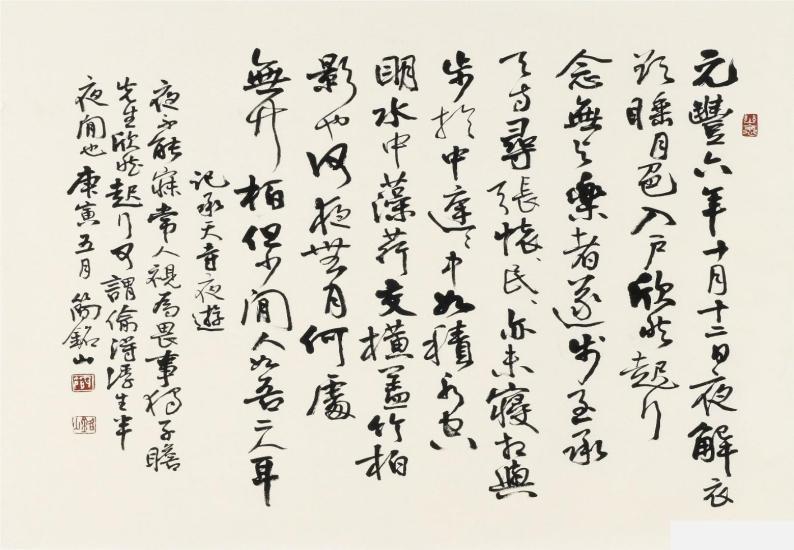 元豐六年十月十二日夜解衣
欲睡月色入戶欣然起行
念無與樂者遂步至承
天寺尋張懷、民、亦未寢相與
步於中庭、中如積水空
明水中藻荇交橫蓋竹柏
影也何夜無月何處
無竹柏但少閒人如吾二人耳
記承天寺夜遊
夜不能寐常人視為畏事獨子瞻
先生欣然起行可謂偷得浮生半
夜閒也庚寅五月銘山